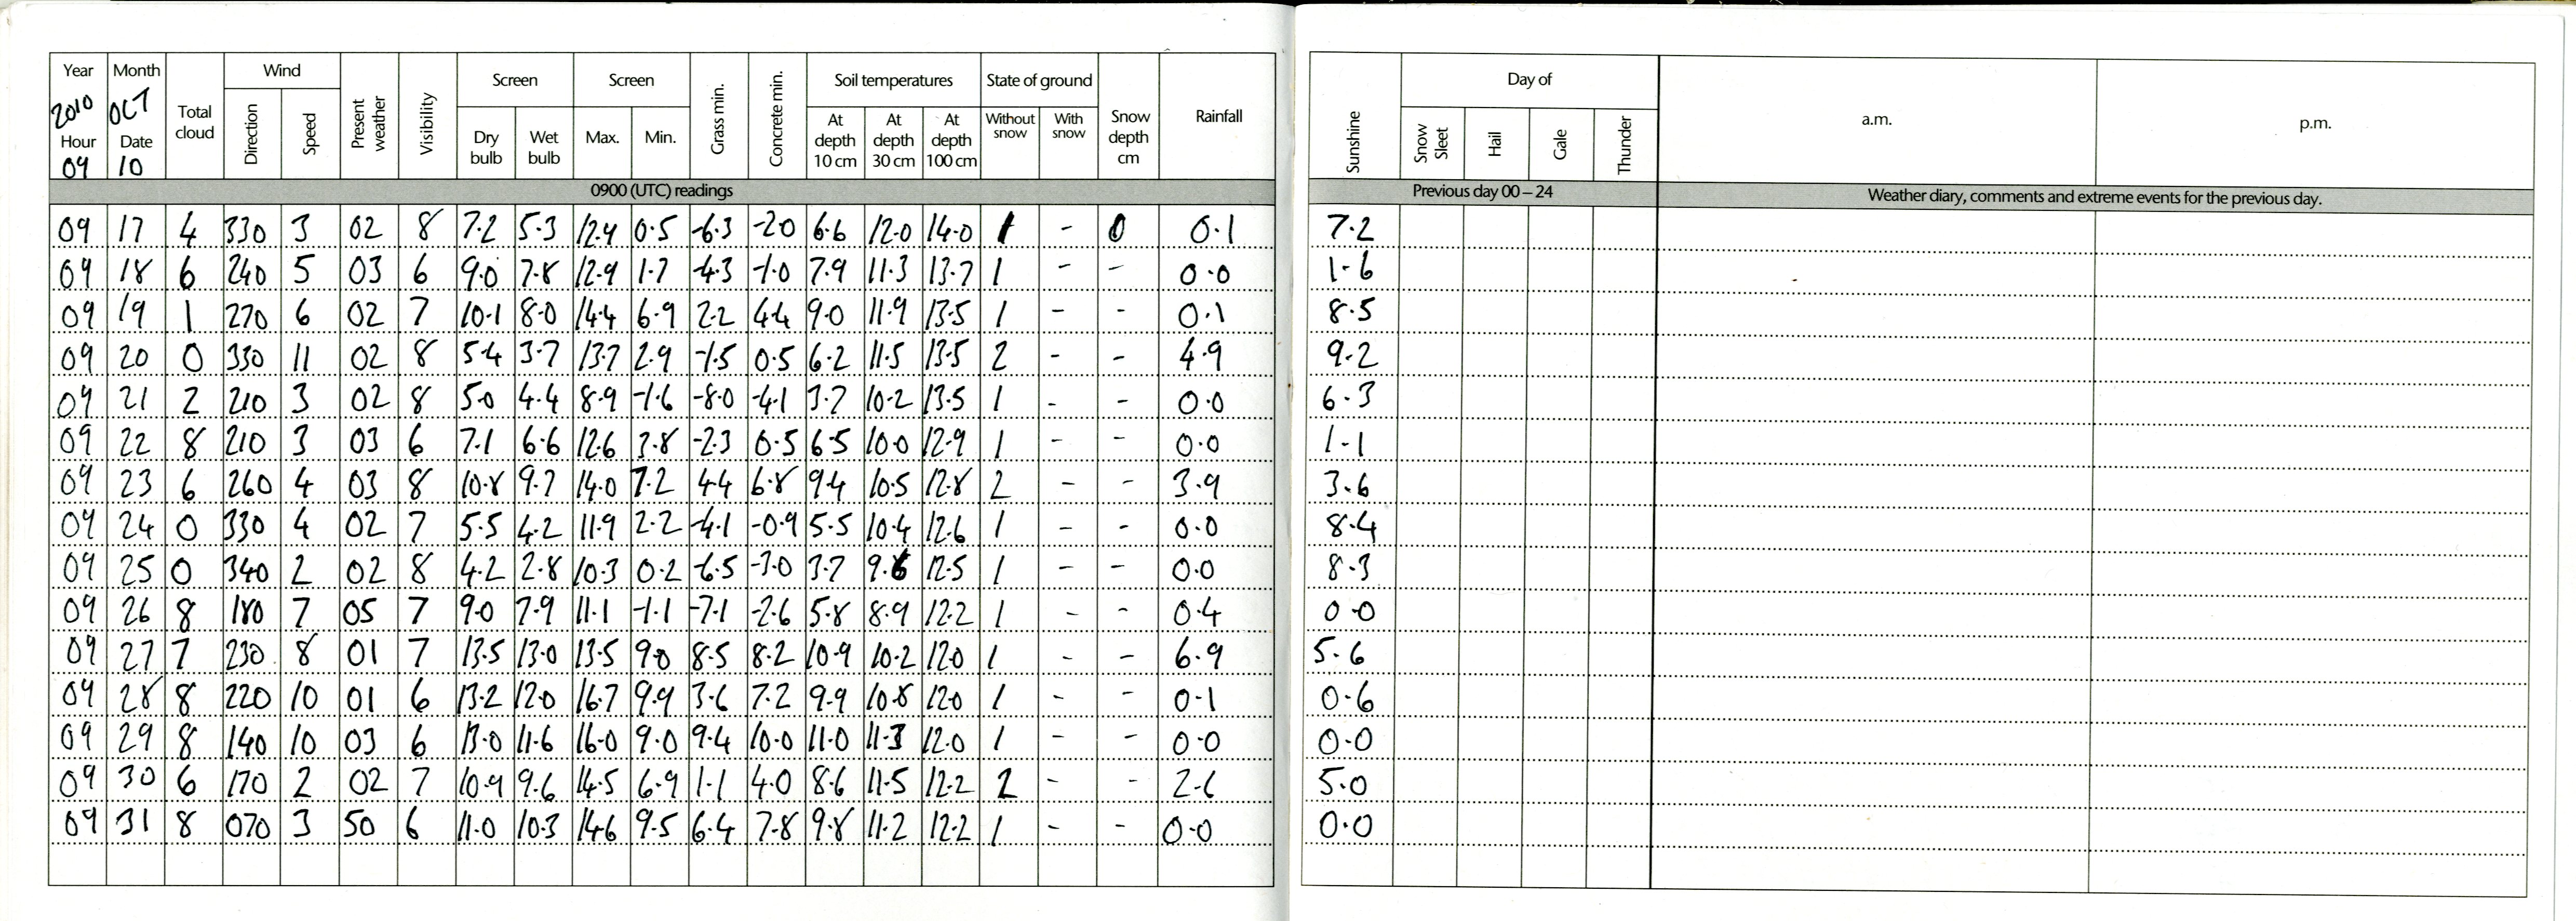 Year Month Total cloud Wind Present weather Visibility Screen Screen Grass min. Concrete min. Soil temperatures State of ground Snow depth cm Rainfall Sunshine Day of a.m. p.m.
2010 OCT Direction Speed Dry bulb Wet bulb Max. Min. At depth 10 cm At depth 30 cm At depth 100 cm Without snow With snow Snow Sleet Hail Gale Thunder
Hour Date
09 10
0900 (UTC) readings Previous day 00 – 24 Weather diary, comments and extreme events for the previous day.
09 17 4 330 3 02 8 7.2 5.3 12.4 0.5 -6.3 -2.0 6.6 12.0 14.0 1 - 0 0.1 7.2
09 18 6 240 5 03 6 9.0 7.8 12.9 1.7 -4.3 -1.0 7.9 11.3 13.7 1 - - 0.0 1.6
09 19 1 270 6 02 7 10.1 8.0 14.4 6.9 2.2 4.4 9.0 11.9 13.5 1 - - 0.1 8.5
09 20 0 330 11 02 8 5.4 3.7 13.7 2.9 -1.5 0.5 6.2 11.5 13.5 2 - - 4.9 9.2
09 21 2 210 3 02 8 5.0 4.4 8.9 -1.6 -8.0 -4.1 3.7 10.2 13.5 1 - - 0.0 6.3
09 22 8 210 3 03 6 7.1 6.6 12.6 3.8 -2.3 0.5 6.5 10.0 12.9 1 - - 0.0 1.1
09 23 6 260 4 03 8 10.8 9.7 14.0 7.2 4.4 6.8 9.4 10.5 12.8 2 - - 3.9 3.6
09 24 0 330 4 02 7 5.5 4.2 11.9 2.2 -4.1 -0.9 5.5 10.4 12.6 1 - - 0.0 8.4
09 25 0 340 2 02 8 4.2 2.8 10.3 0.2 -6.5 -3.0 3.7 9.6 12.5 1 - - 0.0 8.3
09 26 8 180 7 05 7 9.0 7.9 11.1 -1.1 -7.1 -2.6 5.8 8.9 12.2 1 - - 0.4 0.0
09 27 7 230 8 01 7 13.5 13.0 13.5 9.0 8.5 8.2 10.9 10.2 12.0 1 - - 6.9 5.6
09 28 8 220 10 01 6 13.2 12.0 16.7 9.9 3.6 7.2 9.9 10.8 12.0 1 - - 0.1 0.6
09 29 8 140 10 03 6 13.0 11.6 16.0 9.0 9.4 10.0 11.0 11.3 12.0 1 - - 0.0 0.0
09 30 6 170 2 02 7 10.9 9.6 14.5 6.9 1.1 4.0 8.6 11.5 12.2 2 - - 2.6 5.0
09 31 8 070 3 50 6 11.0 10.3 14.6 9.5 6.4 7.8 9.8 11.2 12.2 1 - - 0.0 0.0